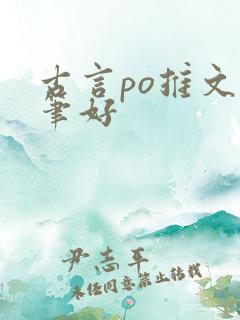 古言po推文
笔好
尹志平
未经同意禁止转载